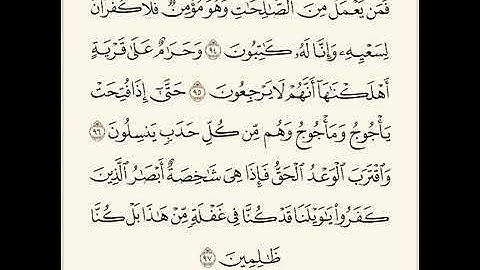 فَمَن يَعْمَلْ مِنَ ٱلصَّـٰلِحَـٰتِ وَهُوَ مُؤْمِنٌ فَلَا كُفْرَانَ
لِسَعْيِهِۦ وَإِنَّا لَهُۥ كَـٰتِبُونَ ٩٤ وَحَرَٰمٌ عَلَىٰ قَرْيَةٍ
أَهْلَكْنَـٰهَآ أَنَّهُمْ لَا يَرْجِعُونَ ٩٥ حَتَّىٰٓ إِذَا فُتِحَتْ
يَأْجُوجُ وَمَأْجُوجُ وَهُم مِّن كُلِّ حَدَبٍ يَنسِلُونَ ٩٦
وَٱقْتَرَبَ ٱلْوَعْدُ ٱلْحَقُّ فَإِذَا هِىَ شَـٰخِصَةٌ أَبْصَـٰرُ ٱلَّذِينَ
كَفَرُوا۟ يَـٰوَيْلَنَا قَدْ كُنَّا فِى غَفْلَةٍ مِّنْ هَـٰذَا بَلْ كُنَّا
ظَـٰلِمِينَ ٩٧